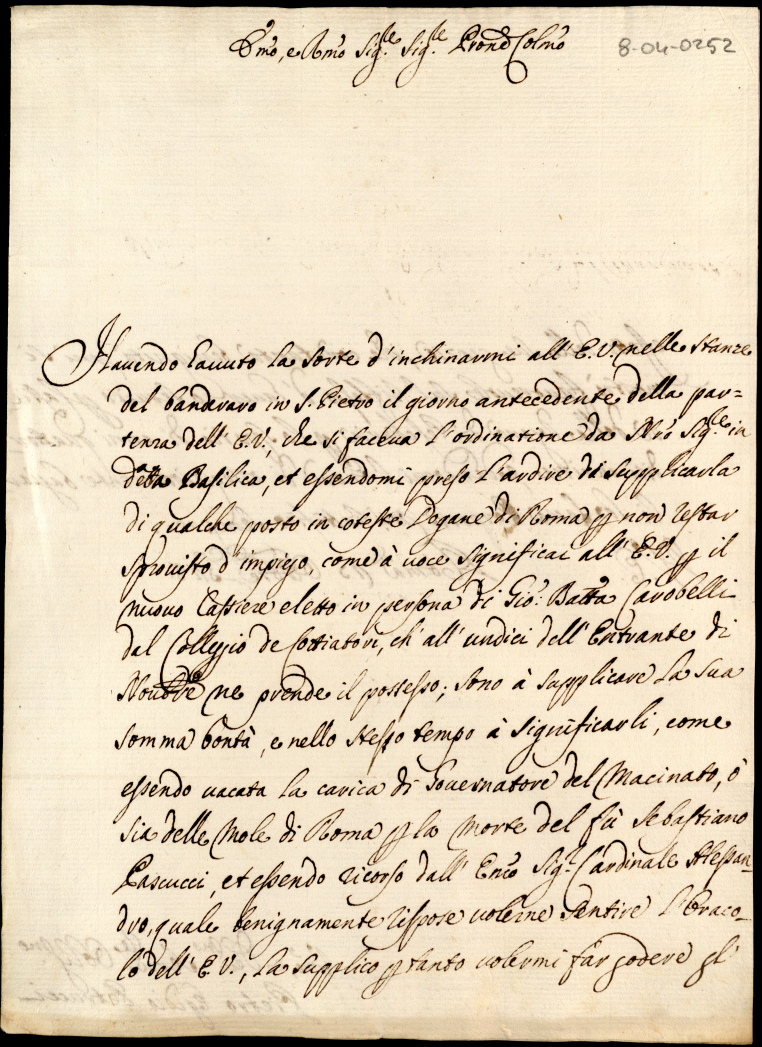 Emo, e Rmo Sig.re Sig.re Prone Colmo
8-04-0252
Havendo havuto la sorte d'inchinarmi all'E.V. nelle stanze
del banderaro in S. Pietro il giorno antecedente della par=
tenza dell'E.V., che si faceva l'ordinatione da Nro Sig.re in
detta Basilica, et essendomi preso l'ardire di supplicarla
di qualche posto in coteste Dogane di Roma p non restar
sprovisto d'impiego, come à voce significai all'E.V. p il
nuovo Cassiere eletto in persona di Gio: Batta Carobelli
dal Collegio de Cottiatori, ch'all'undici dell'Entrante di
Novbre ne prende il possesso; sono à supplicare la sua
somma bontà, e nello stesso tempo à significarli, come
essendo vacata la carica di Governatore del Macinato, ò
sia delle Mole di Roma p la morte del fù Sebastiano
Pascucci, et essendo ricorso dall'Emo Sig.r Cardinale Alessan=
dro, quale benignamente rispose volerne sentire l'Oraco=
lo dell'E.V., la supplico p tanto volermi far godere gl'